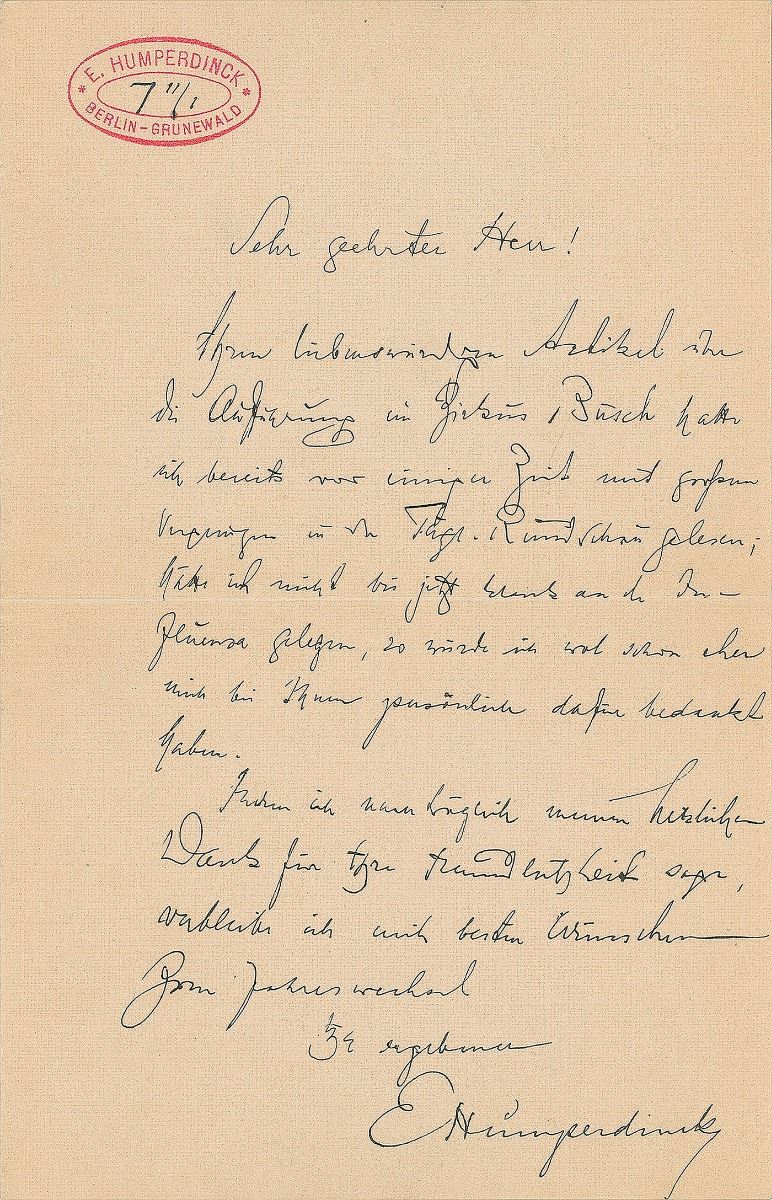 * E. HUMPERDINCK *
7 11/1
BERLIN-GRUNEWALD
Sehr geehrter Herr!
Ihren liebenswürdigen Artikel über
die Aufführung im Zirkus Busch hatte
ich bereits vor einiger Zeit mit großem
Vergnügen in der Tägl. Rundschau gelesen;
hätte ich nicht bis jetzt krank an der In-
fluenza gelegen, so würde ich wol schon eher
mich bei Ihnen persönlich dafür bedankt
haben.
Indem ich nachträglich meinen herzlichen
Dank für Ihre Freundlichkeit sage,
verbleibe ich mit besten Wünschen
zum Jahreswechsel
Ihr ergebener
E Humperdinck